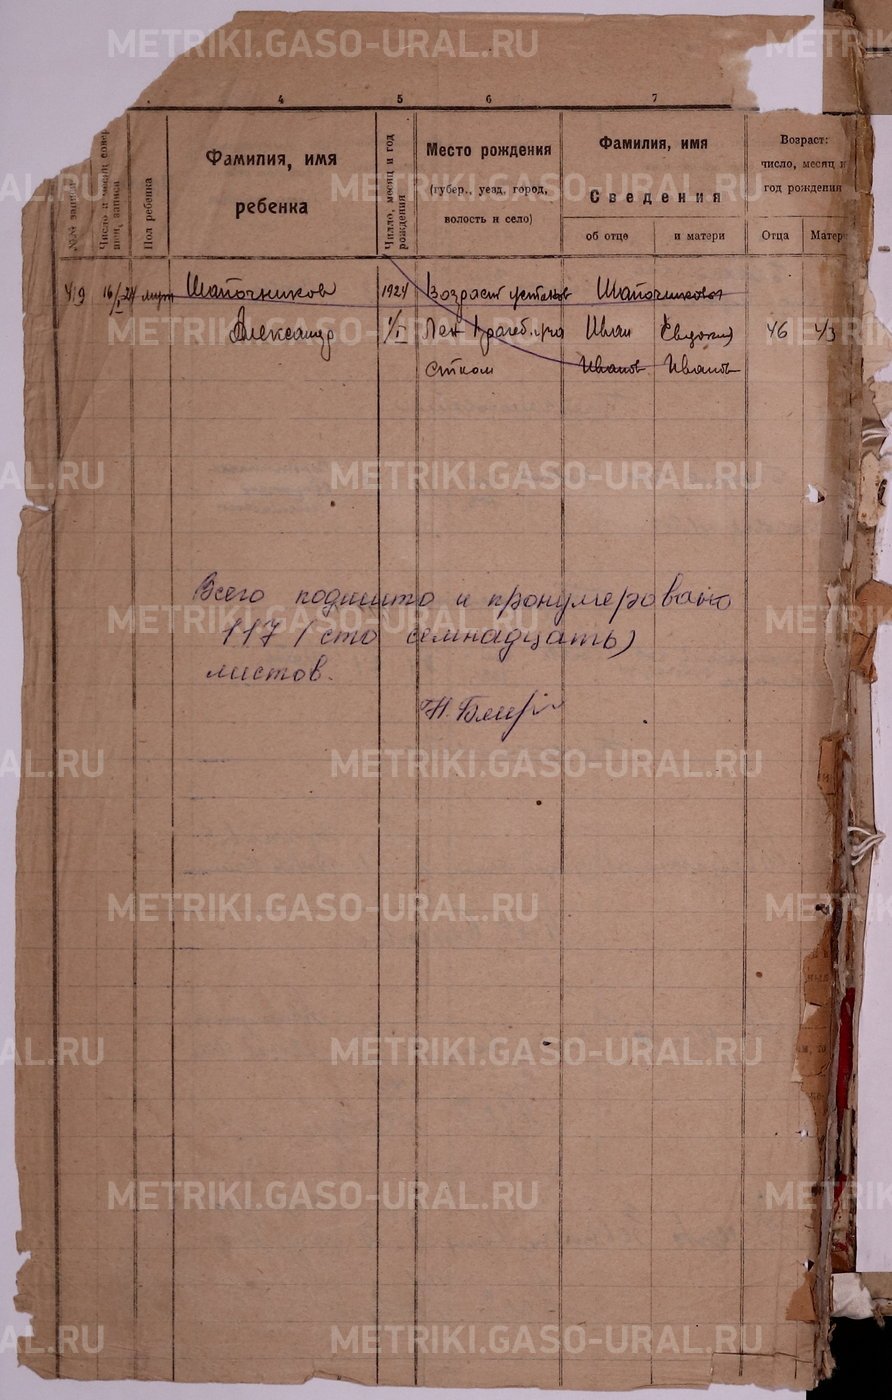 METRIKI.GASO-URAL.RU
4 5 6 7
№№ записи
Число и месяц совер
шен. записи
Пол ребенка
Фамилия, имя
ребенка
Число, месяц и год
рождения
Место рождения
(губер., уезд, город,
волость и село)
Фамилия, имя
Сведения
об отце и матери
Возраст:
число, месяц и
год рождения
Отца Матер
419 16/I-24 муж Шапочников 1924 Возраст установ Шапочников
Александр 1/I Иван Евдокия 46 43
Иванов Иванов
Всего подшито и пронумеровано
117 (сто семнадцать)
листов.